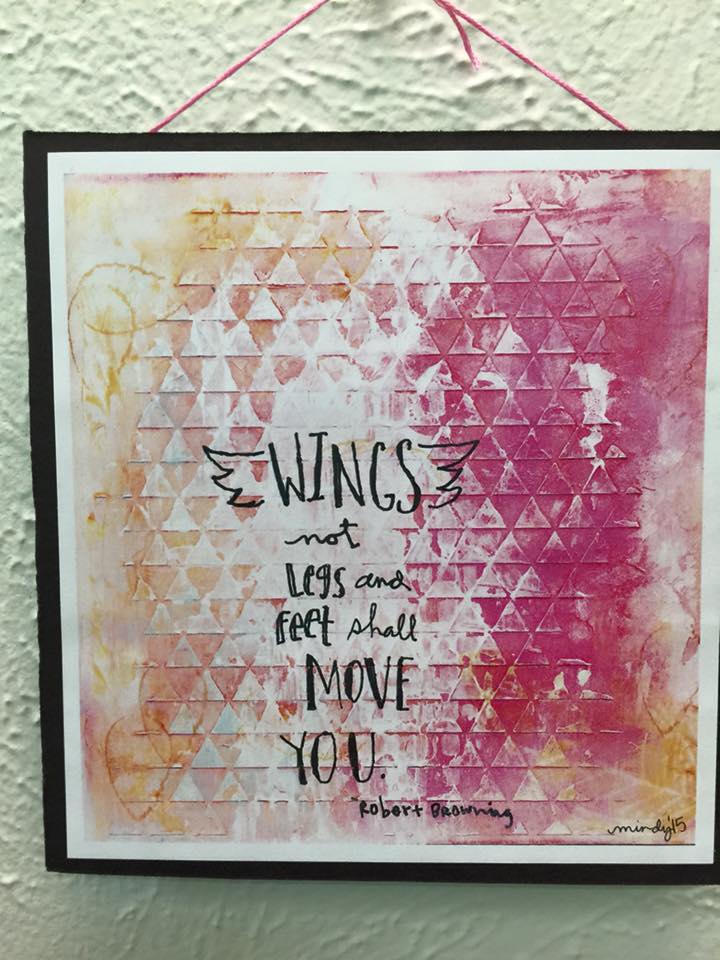 WINGS
not
Legs and
feet shall
MOVE
YOU.
~Robert Browning
mindy '15